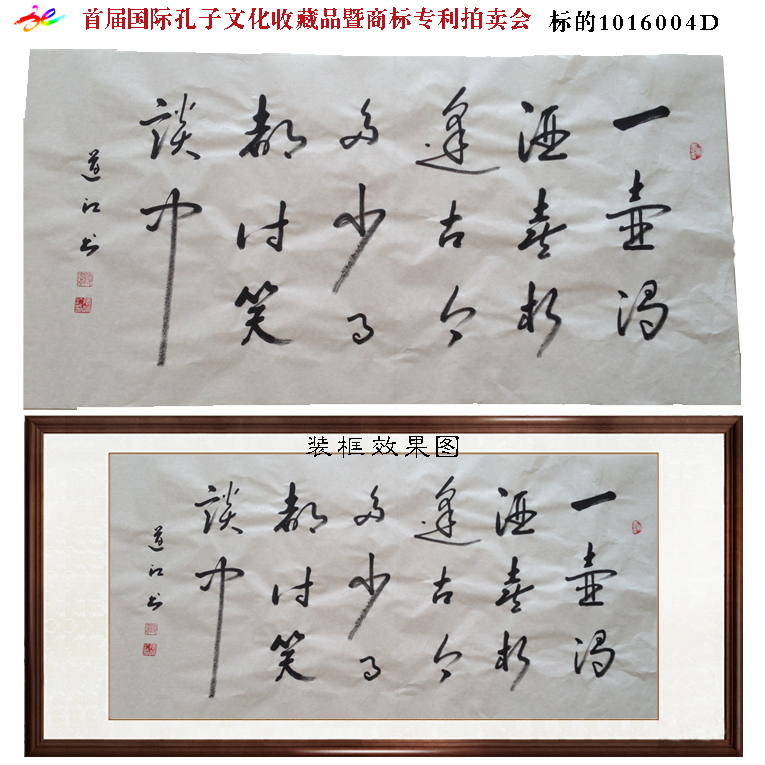 首届国际孔子文化收藏品暨商标专利拍卖会 标的1016004D
一壶濁
酒喜相
逢古今
多少事
都付笑
談中
道江书
装框效果图
一壶濁
酒喜相
逢古今
多少事
都付笑
談中
道江书